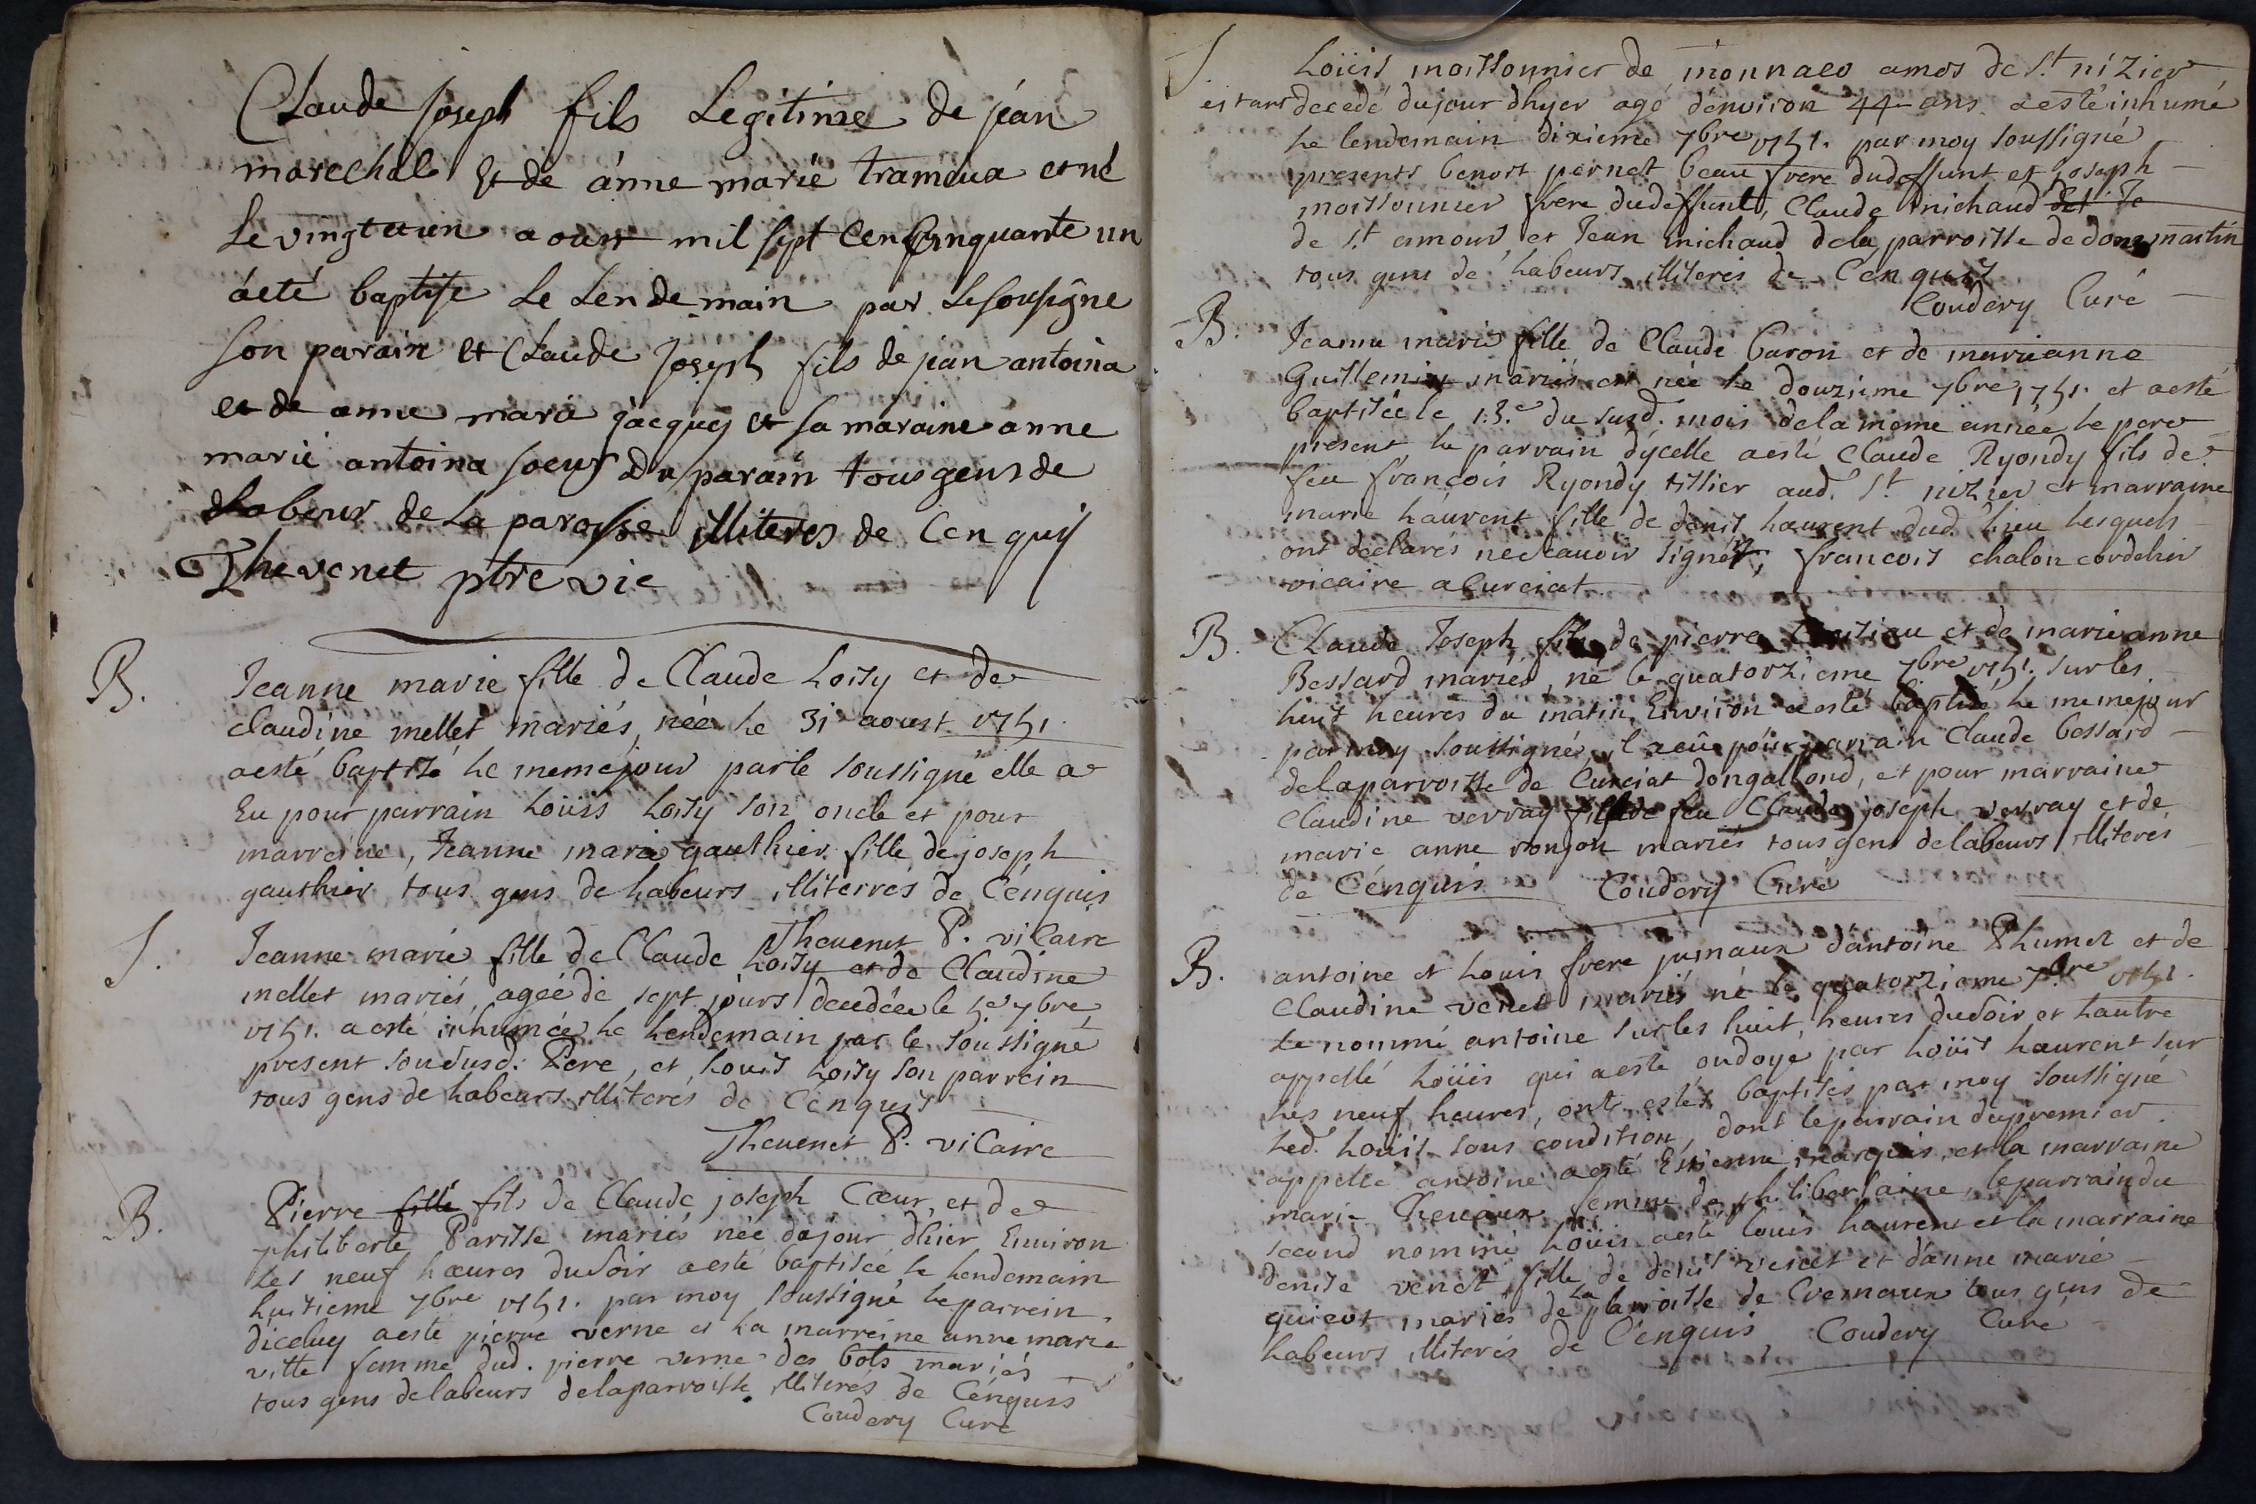 Claude Joseph fils Legitime de jéan
marechal et de ánne marié trameua et né
Le vingt et un aoust mil sept cen cinquante un
áeté baptisé Le Lendemain par Lesousigne
son parain et Claude Joseph fils de jean antoina
et de anne marie jacques et sa maraine anne
marié antoina soeur du parain tous gens de
labeur de La paroisse illiteres de Cenquis
Thevenet ptre vic
B. Jeanne marie fille de Claude Loisy et de
claudine mellet mariés, née le 31 aoust 1751
aesté baptisé le meme jour par le soussigné elle a
Eu pour parrain Loüis Loisy son oncle et pour
marreine, Jeanne marie gauthier fille de joseph
gauthier tous gens de Labeurs illiterrés de Cénquis
Thevenet P. vicaire
S. Jeanne marie fille de Claude Loisy et de Claudine
mellet mariés, agée de sept jours decedée le 5e 7bre
1751. a esté inhumée le Lendemain par le soussigné
present son susd. Pere, et Louis Loisy son parrein
tous gens de Labeurs illiterés de Cénquis
Thevenet P. vicaire
B. Pierre fille fils de Claude joseph Cœur, et de
philiberte Parisse mariés née du jour dhier Environ
Les neuf hœures du soir aesté baptisée le Lendemain
huitieme 7bre 1751. par moy soussigné le parrein
diceluy aesté pierre verne et La marreine anne marie
vitte femme dud. pierre verne des bois mariés
tous gens de labeurs de la parroisse illiterés de Cénquis
Coudery Curé
S. Loüis moissonnier de monnaeo amos de St. nizier
estant decedé du jour dhyer agé d'environ 44 ans aesté inhumé
Le lendemain dixieme 7bre 1751. par moy soussigné
presents benoit pernet beau frere du deffunt et Joseph
moissonnier frere du deffunt, Claude michaud
de St amour et Jean michaud de la parroisse de dommartin
tous gens de Labeurs illiterés de Cenquis
Coudery Curé
B. Jeanne marie fille de Claude Caron et de marieanne
Guillemin mariés est née Le douzieme 7bre 1751. et aesté
baptisée le 13.e du susd. mois de la même année le pere
present le parrain dycelle aesté Claude Ryondy fils de
feu françois Ryondy tissier aud. St. nizier et marraine
marie Laurent fille de denis Laurent dud. lieu Lesquels
ont déclarés ne scavoir signer, francois chalon cordelier
vicaire a Curciat
B. Claude Joseph fils de pierre et de marieanne
Bessard mariés, né le quatorzieme 7bre 1751. sur les
huit heures du matin Environ aesté baptisé Le meme jour
par moy soussigné, il a eû pour parrain Claude bessard
de la parroisse de Curciat dongallond, et pour marraine
Claudine verray fille de feu Claude joseph verray et de
marie anne rongon mariés tous gens de labeurs illiterés
de Cénquis Coudery Curé
B. antoine et Louis frere jumaux d'antoine Phumet et de
Claudine venet mariés né le quatorzieme 7bre 1751.
Le nommé antoine sur les huit heures du soir et Lautre
appellé Loüis qui a esté ondoyé par Loüis Laurent sur
Les neuf heures, ont estés baptisés par moy soussigné
Led. Louis sous condition, dont le parrain du premier
appellé antoine a esté Estienne marquis et la marraine
marie femme de philibert aine, le parrain du
second nommé Louis aesté Louis Laurent et la marraine
denise venet fille de denis venet et d'anne marie
quicot mariés de La parroisse de Cremaux tous gens de
Labeurs illiterés de Cénquis Coudery Curé